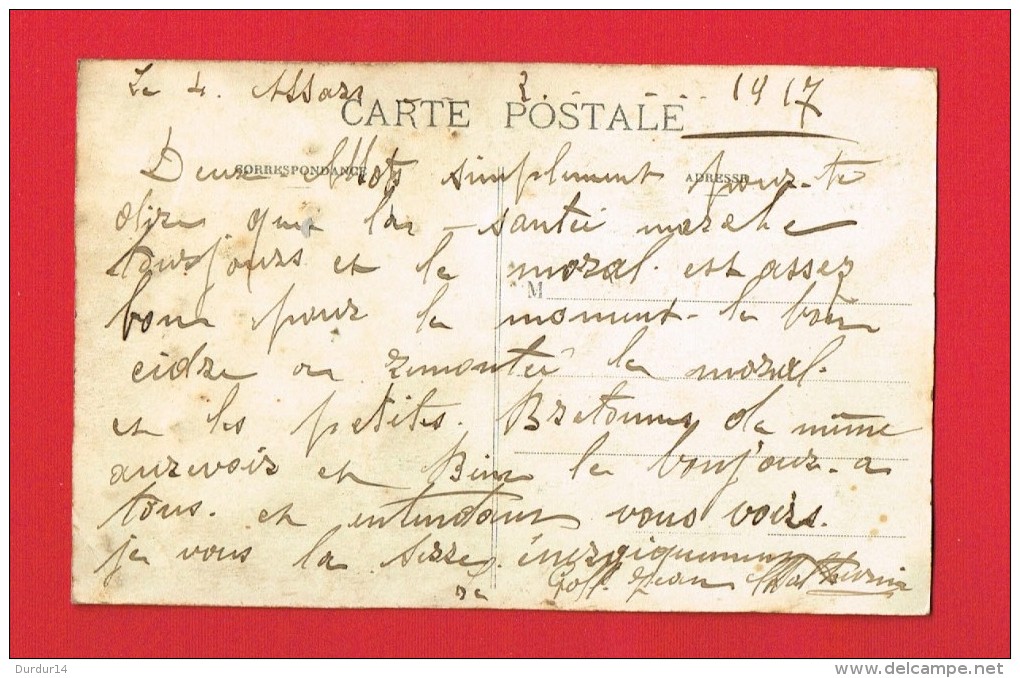 Le 4. Mars 1917
CARTE POSTALE
CORRESPONDANCE
ADRESSE
M
Deux Mots simplement pour te
dire que la santé marche
toujours et le moral. est assez
bon pour le moment le bon
cidre a remonté le moral.
et les petites. Bretonnes de même
aurevoir et Bien le bonjour a
tous. et entendant vous voirs.
je vous la serre énergiquement
Jean
Durdur14
www.delcampe.net